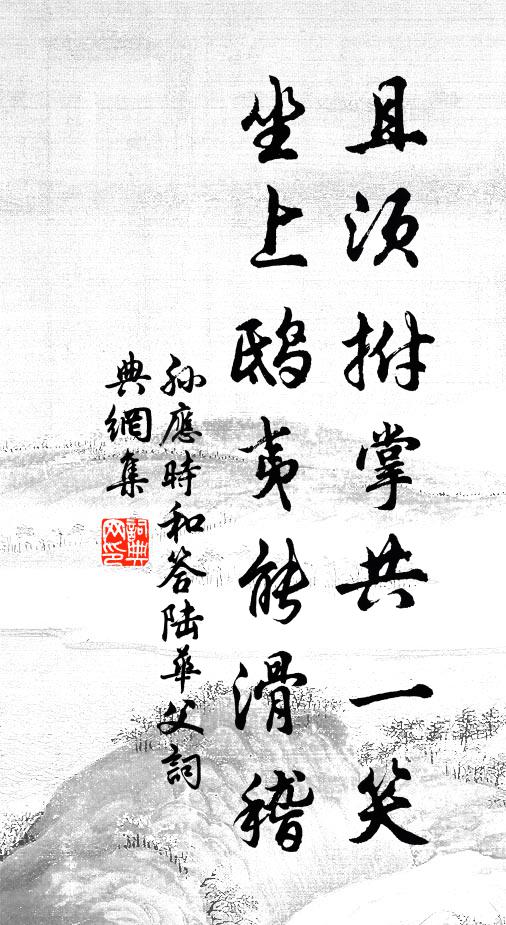 且須拊掌共一笑
坐上鴟夷能滑稽
孫應時和答陸華父詞
典網集
詞典网印